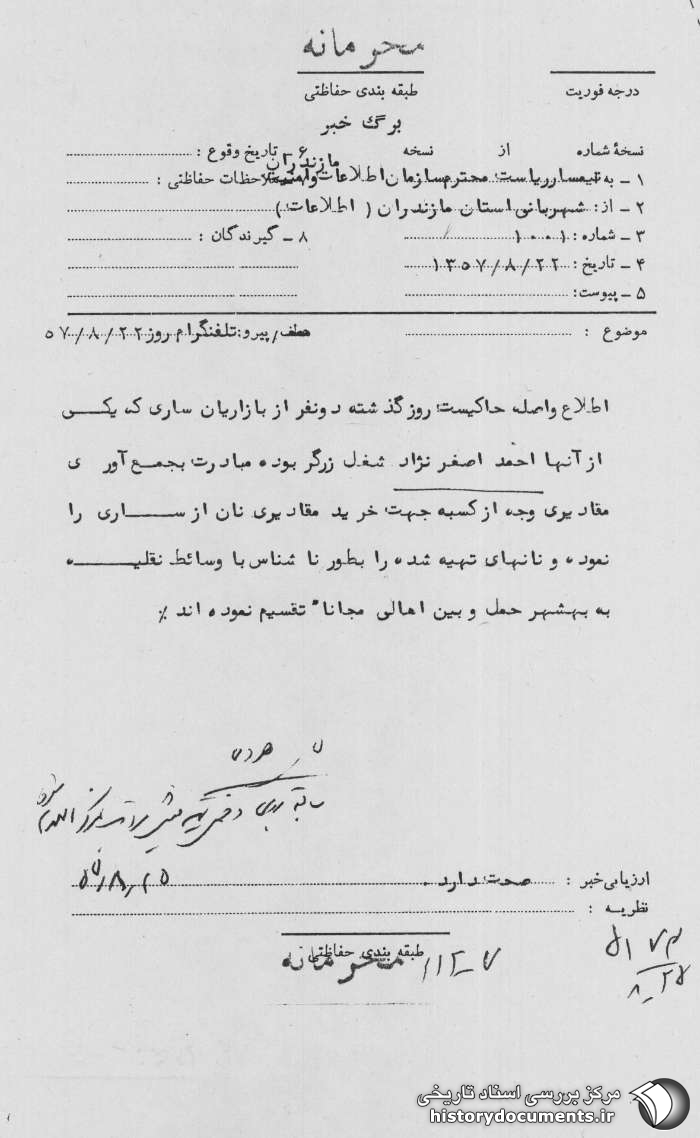 محرمانه
درجه فوریت
طبقه بندی حفاظتی
برگ خبر
نسخهٔ شماره از نسخه
۱ ـ به: تیمسار ریاست محترم سازمان اطلاعات وامنیت مازندران
۲ ـ از: شهربانی استان مازندران ( اطلاعات )
۳ ـ شماره : ۱۰۰۱
۴ ـ تاریخ : ۱۳۵۷/۸/۲۲
۵ ـ پیوست:
۶ ـ تاریخ وقوع :
ملاحظات حفاظتی :
۸ ـ گیرندگان :
موضوع :
عطف/پیرو: تلفنگرام روز ۵۷/۸/۲۲
اطلاع واصله حاکیست روز گذشته دونفر از بازاریان ساری که یکـــی
از آنها احمد اصغر نژاد شغل زرگر بوده مبادرت بجمع آور ی
مقادیری وجه از کسبه جهت خرید مقادیری نان از ســـاری را
نموده و نانهای تهیه شده را بطور نا شناس با وسائط نقلیـــه
به بهشهر حمل و بین اهالی مجانا" تقسیم نموده اند ٪
ارزیابی خبر : صحت دارد . ۵۷/۸/۲۵
نظریـه :
طبقه بندی حفاظتی
محرمانه
مرکز بررسی اسناد تاریخی
historydocuments.ir